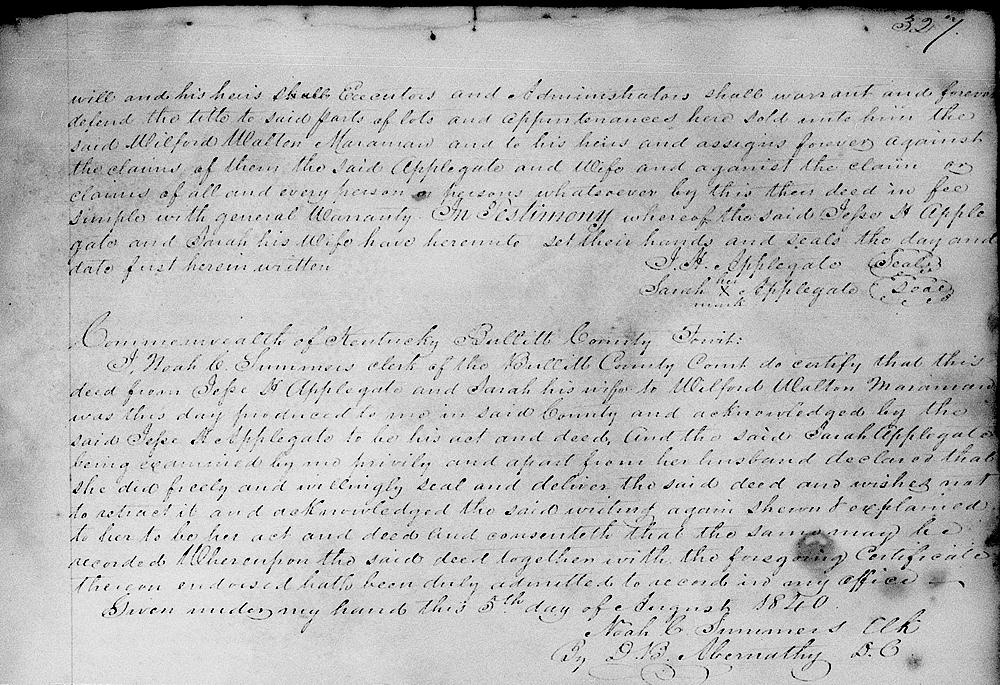 327.
will and his heirs shall Executors and Administrators shall warrant and forever
defend the title to said parts of lots and appurtenances here sold unto him the
said Wilford Walton Maraman and to his heirs and assigns forever against
the claims of them the said Applegate and Wife and against the claim or
claims of all and every person or persons whatsoever by this their deed in fee
simple with general Warranty. In Testimony whereof the said Jesse H Apple
gate and Sarah his Wife have hereunto set their hands and seals the day and
date first herein written
J. H. Applegate (Seal)
Sarah her X mark Applegate (Seal)
Commonwealth of Kentucky Bullitt County Towit:
I, Noah C. Summers clerk of the Bullitt County Court do certify that this
deed from Jesse H Applegate and Sarah his wife to Wilford Walton Maraman
was this day produced to me in said County and acknowledged by the
said Jesse H Applegate to be his act and deed, And the said Sarah Applegate
being examined by me privily and apart from her husband declared that
she did freely and willingly seal and deliver the said deed and wishes not
to retract it and acknowledged the said writing again shewn & explained
to her to be her act and deed and consenteth that the same may be
recorded Whereupon the said deed together with the foregoing Certificate
thereon endorsed hath been duly admitted to record in my office
Given under my hand this 5th day of August 1840.
Noah C. Summers Clk
By D. B. Abernathy D. C.